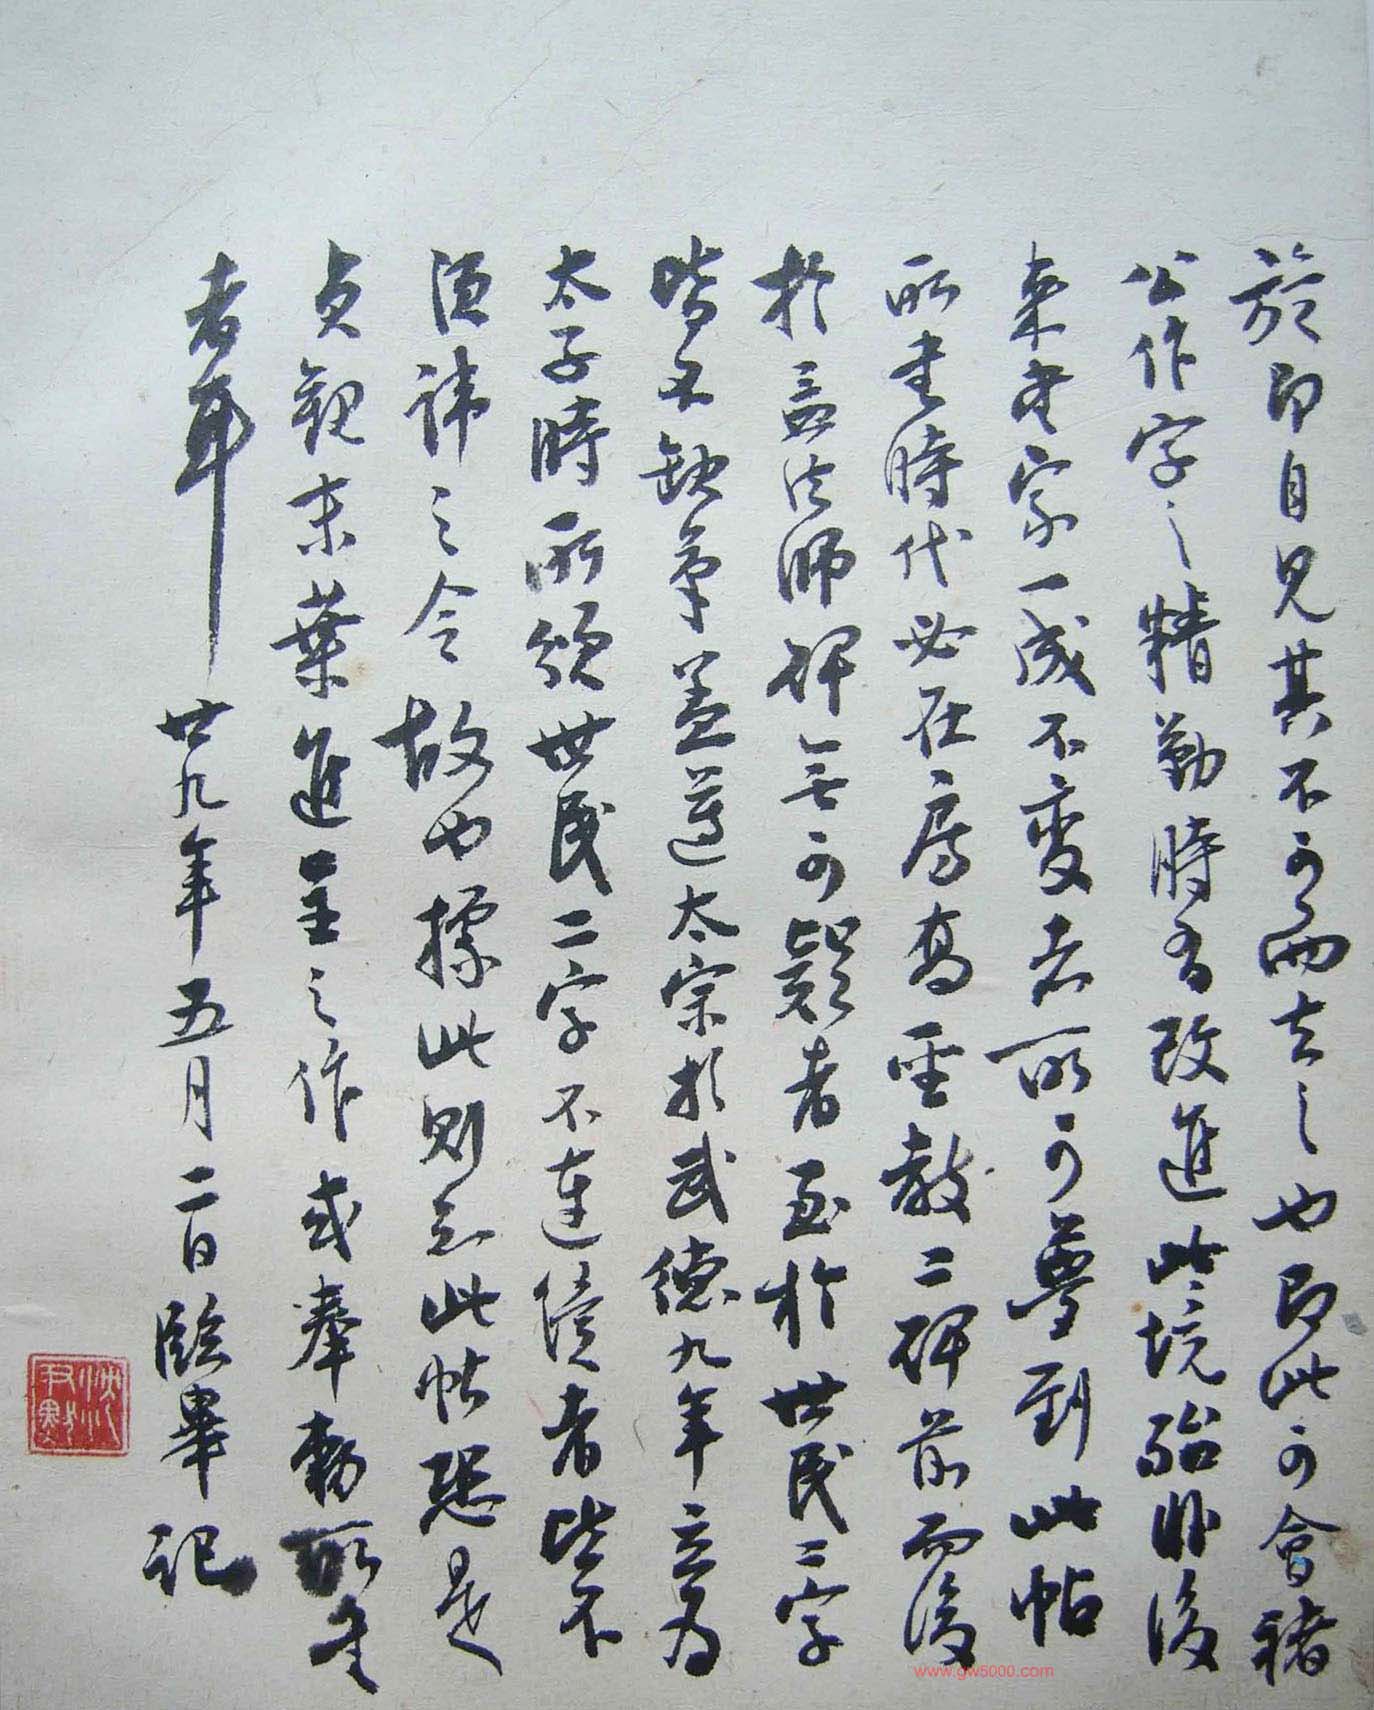 於即自見其不可而去之也即此可會褚
公作字之精勤時有改進此境殆非後
來書家一成不變者所可夢到此帖
所書時代必在房高聖教二碑前而後
於孟法師碑無可疑者至於世民二字
皆不缺筆蓋遵太宗於武德九年立為
太子時所頒世民二字不連續者皆不
須諱之令故也據此則知此帖恐是
貞觀末葉進呈之作或奉勅所書
者耳 廿九年五月二日臨畢記
www.gw5000.com